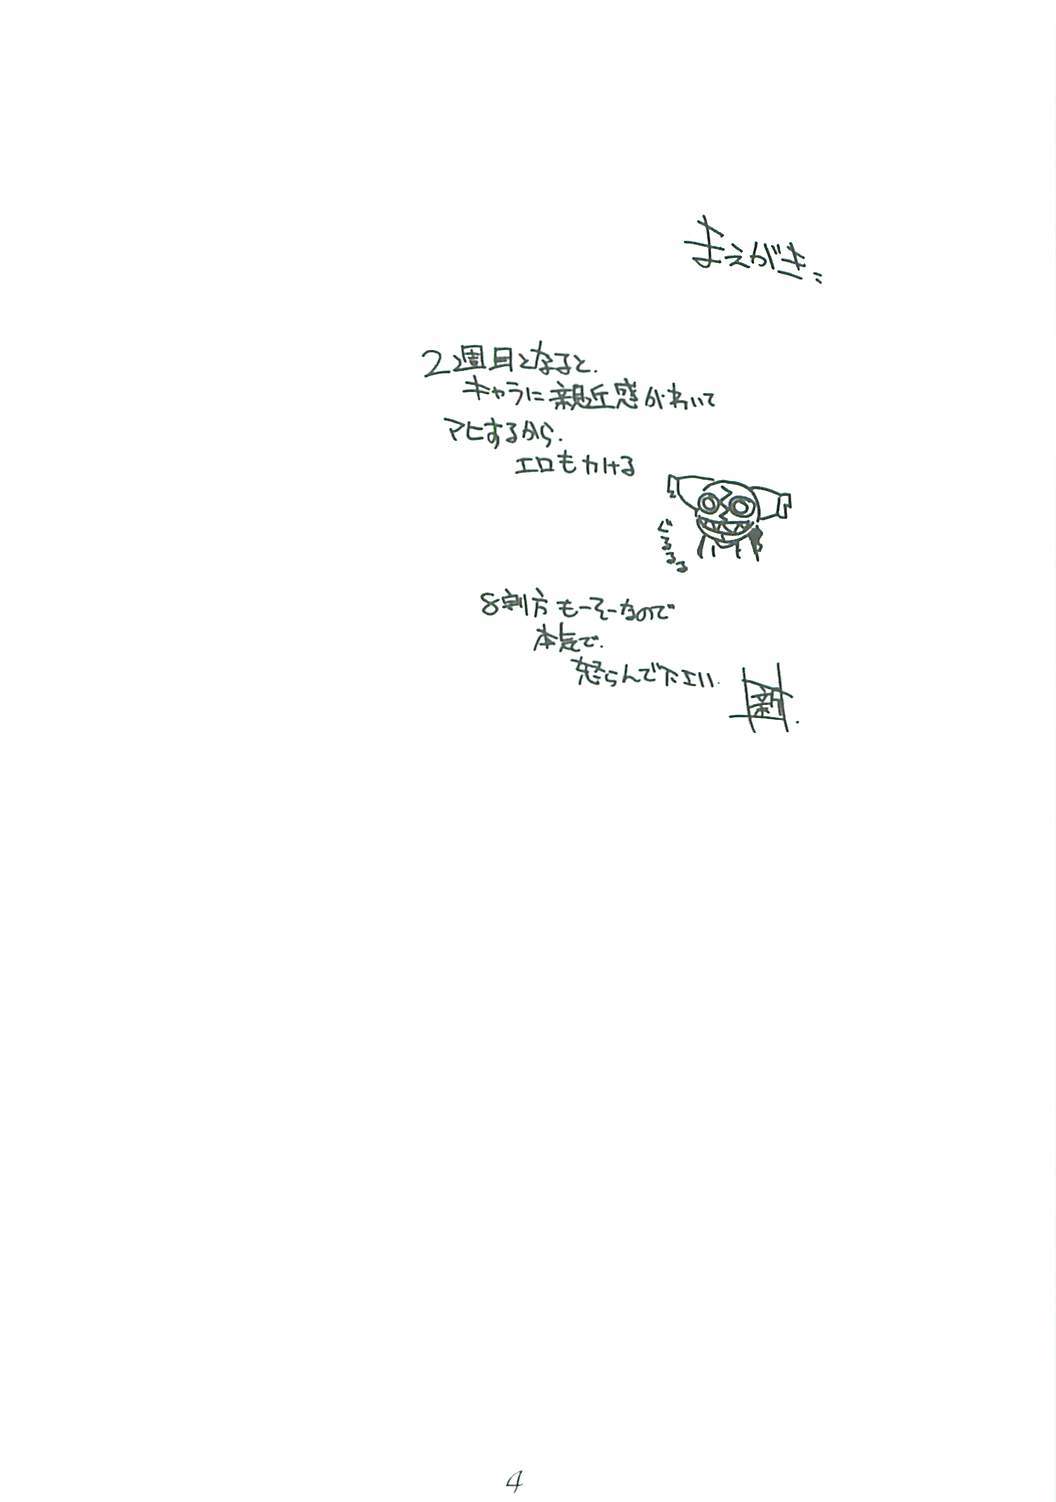 まえがき:
2週目となると.
キャラに親近感がわいて
マヒするから.
エロもかける
ぐるるる
8割方もーそーなので
本気で.
怒らんで下エい.
新
4